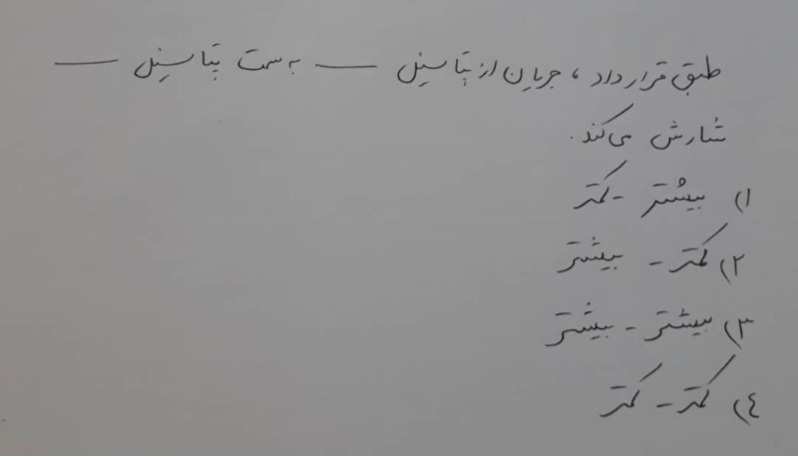 طبق قرارداد، جریان از پتانسیل — به سمت پتانسیل —
شارش می‌کند.
۱) بیشتر - کمتر
۲) کمتر - بیشتر
۳) بیشتر - بیشتر
۴) کمتر - کمتر